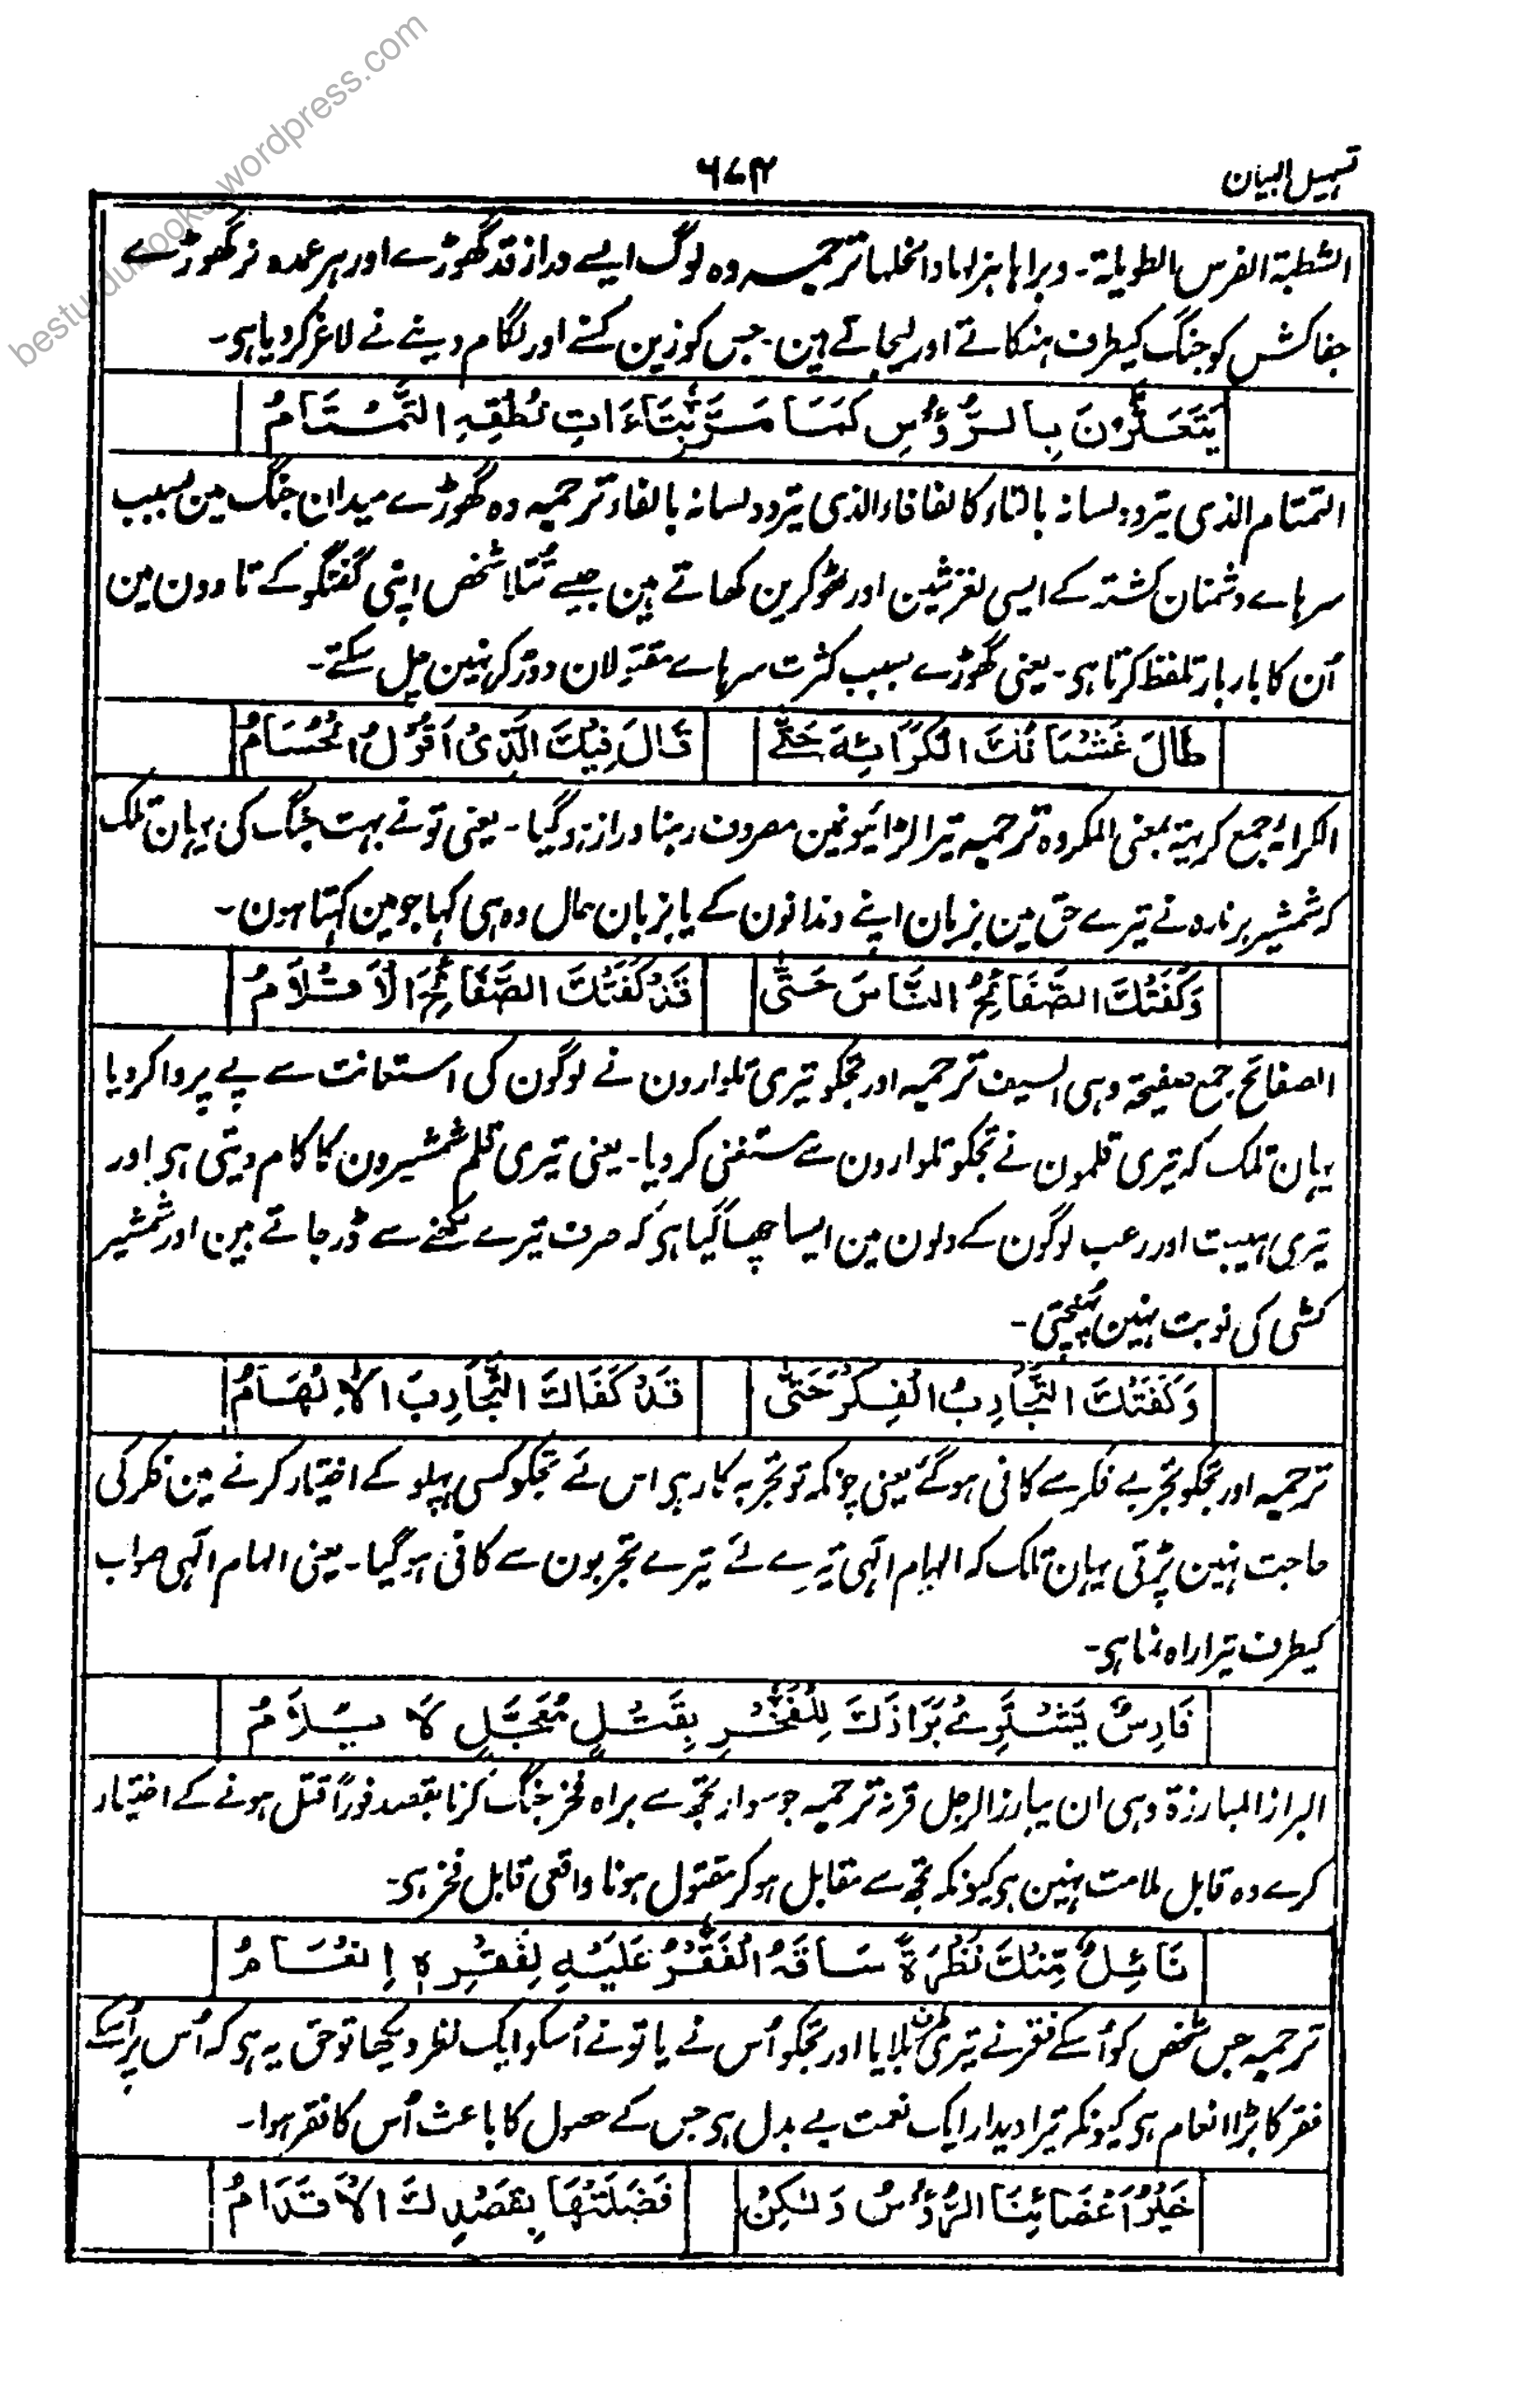 besturdubooks.wordpress.com
تسہیل البیان
۶۷۴
الشطبة الفرس الطویلة۔ وبراہا ہزلہا وانحلہا ترجمہ وہ لوگ ایسے دراز قد گھوڑے اور ہر عمدہ نر گھوڑے
جفاکش کو جنگ کیطرف ہنکاتے اور لیجاتے ہین۔ جس کو زین کسنے اور لگام دینے نے لاغر کردیا ہی۔
يَتَعَثَّرْنَ بِالرُّؤُسِ كَمَا مَرَّ بِتَاءَاتِ نُطْقِهِ التَّمْتَامُ
التمتام الذی یتردد لسانہ بالتاء کالفافاء الذی یتردد لسانہ بالفاء ترجمہ وہ گھوڑے میدان جنگ مین بسبب
سرہاے دشمنان کشتہ کے ایسی لغزشین اور ٹھوکرین کھاتے ہین جیسے تُتلا شخص اپنی گفتگو کے تاوون مین
اُن کا بار بار تلفظ کرتا ہی۔ یعنی گھوڑے بسبب کثرت سرہاے مقتولان دوڑ کر نہین چل سکتے۔
طَالَ غَشْيَانُكَ الْكَرَائِهَ حَتَّى قَالَ فِيْكَ الَّذِىْ اَقُوْلُ الْحُسَامُ
الکرائہ جمع کریہة بمعنی المکروہ ترجمہ تیرا لڑائیونمین مصروف رہنا دراز ہوگیا۔ یعنی تو نے بہت جنگ کی یہان تلک
کہ شمشیر برندہ نے تیرے حق مین بزبان اپنے دندانون کے یا بزبان حال وہ ہی کہا جو مین کہتا ہون۔
وَكَفَتْكَ الصَّفَائِحُ النَّاسَ حَتّٰى قَدْ كَفَتْكَ الصَّفَائِحَ الْاَقْلَامُ
الصفائح جمع صفیحة وہی السیف ترجمہ اور تجکو تیری تلوارون نے لوگون کی استعانت سے بے پروا کردیا
یہان تلک کہ تیری قلمون نے تجکو تلوارون سے مستغنی کردیا۔ یعنی تیری قلم شمشیرون کا کام دیتی ہی اور
تیری ہیبت اور رعب لوگون کے دلون مین ایسا چھا گیا ہی کہ صرف تیرے لکھنے سے ڈر جاتے ہین اور شمشیر
کشی کی نوبت نہین پہنچتی۔
وَكَفَتْكَ التَّجَارِبُ الْفِكْرَ حَتّٰى قَدْ كَفَاكَ التَّجَارِبَ الْاِلْهَامُ
ترجمہ اور تجکو تجربے فکر سے کافی ہوگئے یعنی چونکہ تو تجربہ کار ہی اس لئے تجکو کسی پہلو کے اختیار کرنے مین فکر کی
حاجت نہین پڑتی یہان تلک کہ الہام الٰہی تیرے لئے تیرے تجربون سے کافی ہوگیا۔ یعنی الہام الٰہی صواب
کیطرف تیرا راہ نما ہی۔
فَارِسٌ يَّشْتَرِىْ بَرَازَكَ لِلْفَخْرِ بِقَتْلٍ مُعَجَّلٍ لَا يُلَامُ
البراز المبارزة وہی ان یبارز الرجل قرنہ ترجمہ جو سوار تجھ سے براہ فخر جنگ کرنا بقصد فوراً قتل ہونے کے اختیار
کرے وہ قابل ملامت نہین ہی کیونکہ تجھ سے مقابل ہوکر مقتول ہونا واقعی قابل فخر ہی۔
نَائِلٌ مِّنْكَ نَظْرَةً سَاقَهُ الْفَقْرُ عَلَيْهِ لِفَقْرِهٖ اِنْعَامُ
ترجمہ جس شخص کو اُسکے فقر نے تیری طرف بلایا اور تجکو اُس نے یا تو نے اُسکو ایک نظر دیکھا تو حق یہ ہی کہ اُس پر اُسکے
فقر کا بڑا انعام ہی کیونکہ تیرا دیدار ایک نعمت بے بدل ہی جس کے حصول کا باعث اُس کا فقر ہوا۔
خَيْرُ اَعْضَائِنَا الرُّؤُسُ وَلٰكِنْ فَضَلَتْهَا بِقَصْدِكَ الْاَقْدَامُ